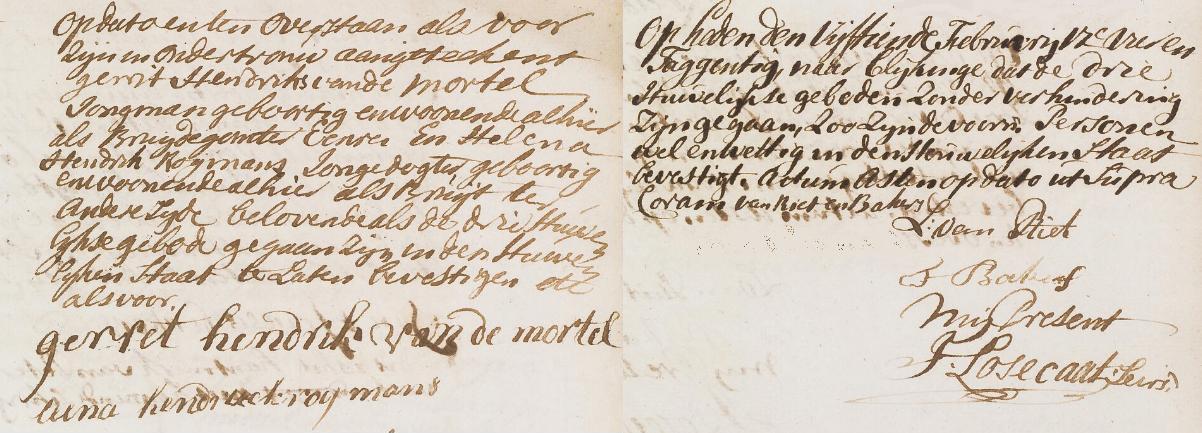 Op dato en ten overstaan als voor
Zijn in ondertrouw aangeteekent
gerrit Hendrikse vande Mortel
Jongman geboortig en woonende alhier
als Bruijdegom ter Eenre En Helena
Hendrik Roijmans Jonge dogter geboortig
en woonende alhier als Bruijt ter
Andere Zyde belovende als de drie Huwe
lykse gebode gegaan Zijn in den Huwe
lyken Staat te Laten bevestigen etc
als voor.
gerret hendrik van de mortel
hendrick roymans
Op heden den Vijftiende February 17c vier en
Taggentig, naar blijkinge dat de drie
Huwelijkse geboden Zonder verhindering
Zijn gegaan, Zoo Zijn de voorn. Persoonen
wel en wettig in den Houwelijken Staat
bevestigt. Actum Asten op dato ut Supra
Coram van Riet en Bakers
L. van Riet
F Bakers
Mij Present
J. Losecaat